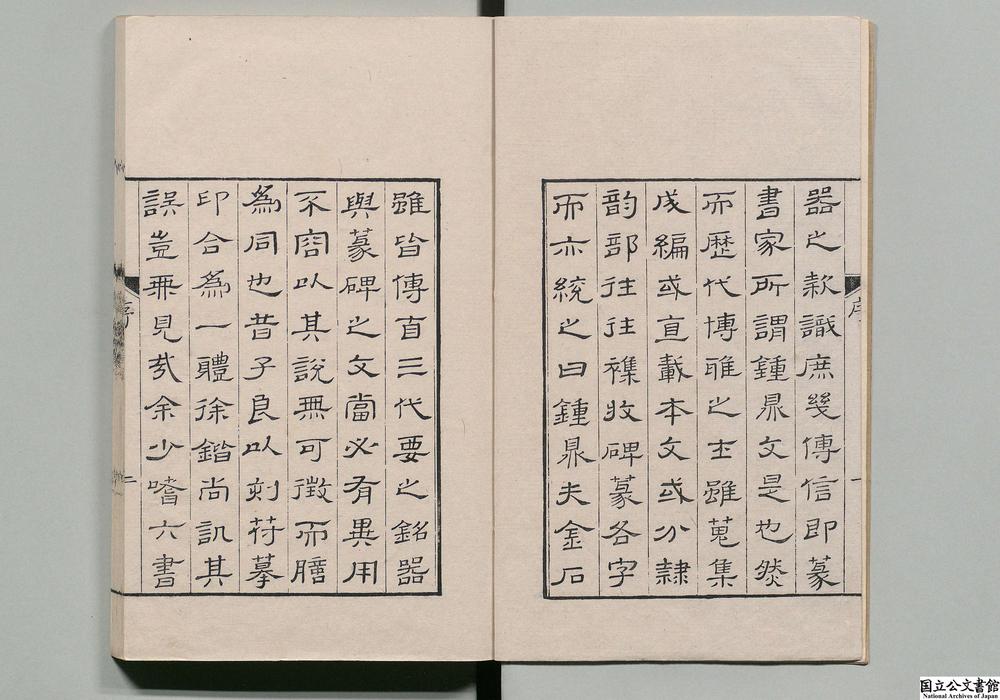 器之款識庶幾傳信即篆
書家所謂鍾鼎文是也然
而歴代博雅之士雖蒐集
成編或直載本文或分隷
韵部往往襍收碑篆各字
而亦統之曰鍾鼎夫金石
雖皆傳自三代要之銘器
與篆碑之文當必有異用
不容以其説無可徴而臆
為同也昔子良以刻符摹
印合為一體徐鍇尚譏其
誤豈無見哉余少嗜六書
序
一
序
二
国立公文書館
National Archives of Japan